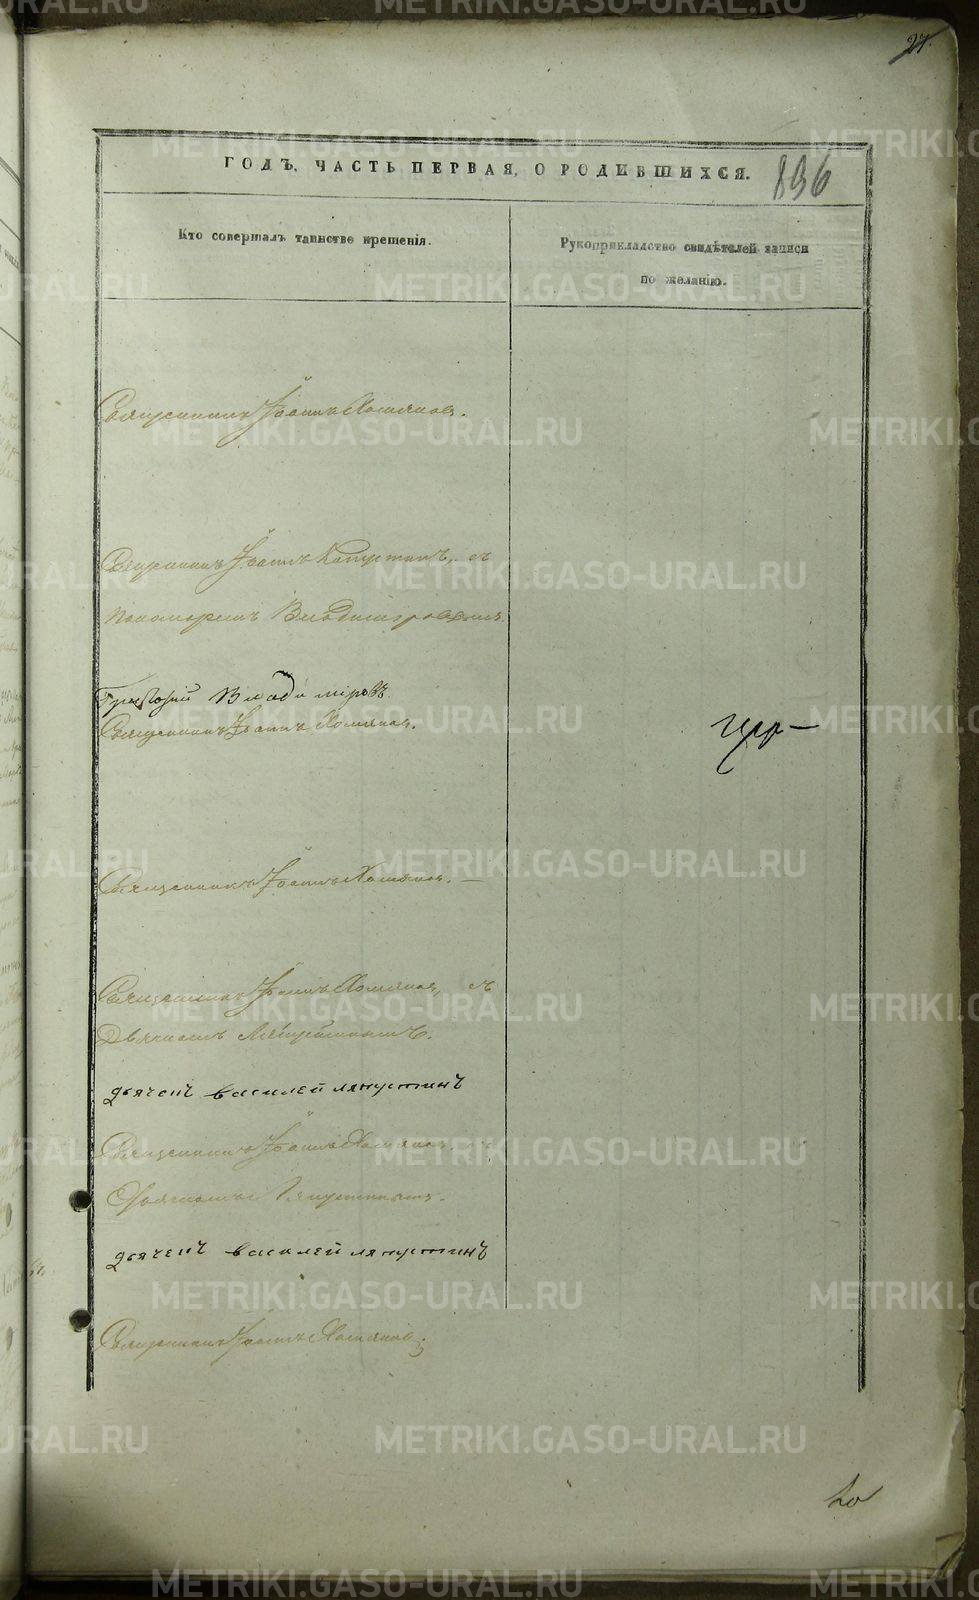 27.
ГОДЪ, ЧАСТЬ ПЕРВАЯ, О РОДИВШИХСЯ.
896
Кто совершалъ таинство крещенія.
Рукоприкладство свидѣтелей записи
по желанію.
Священникъ Іоаннъ Хомяковъ.
Священникъ Іоаннъ съ
пономаремъ Владимировымъ
Григорій Владиміровъ.
Священникъ Іоаннъ Хомяковъ.
Священникъ Іоаннъ Хомяковъ. —
Священникъ Іоаннъ Хомяковъ, съ
Дьячкомъ Ляпустинымъ.
дьячекъ василей ляпустинъ
Священникъ Іоаннъ Хомяковъ съ
Дьячкомъ Ляпустинымъ.
дьячекъ василей ляпустинъ
Священникъ Іоаннъ Хомяковъ.
METRIKI.GASO-URAL.RU